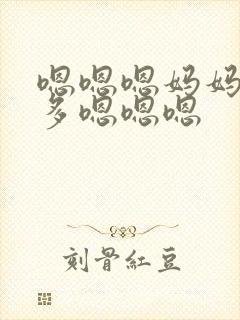 嗯嗯嗯妈妈
多嗯嗯嗯
刻骨紅豆